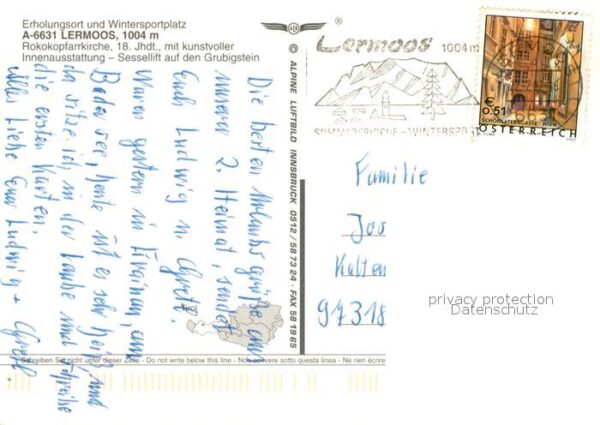 Erholungsort und Wintersportplatz
A-6631 LERMOOS, 1004 m
Rokokopfarrkirche, 18. Jhdt., mit kunstvoller
Innenausstattung – Sessellift auf den Grubigstein
Die besten Urlaubsgrüße aus
unserer 2. Heimat, sendet
Euch Ludwig u.
Waren gestern in am
Badersee, heute ist es sehr heiß und
da sitze ich in der Laube und schreibe
die ersten Karten.
Alles Liebe Euer Ludwig +
© ALPINE LUFTBILD INNSBRUCK 0512/58 73 24 · FAX 58 19 65
Lermoos 1004 m
SOMMERFRISCHE – WINTERSPORT
€ 0,51
SCHÖNLATERNGASSE · WIEN
ÖSTERREICH
Familie
Jos
Kelten
97318
privacy protection
Datenschutz
Schreiben Sie nicht unter dieser Zeile - Do not write below this line - Non scrivere sotto questa linea - Ne rien écrire